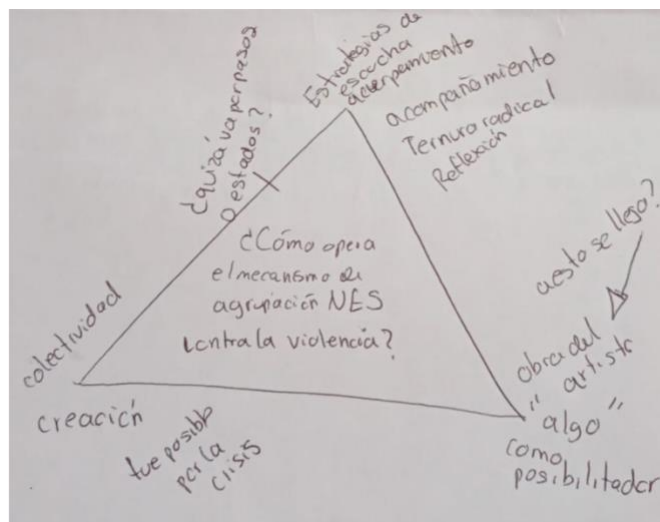 Estrategias de
escucha
acuerpamiento
acompañamiento
Ternura radical
Reflexión
¿quizá va por pasos
o estados?
¿Cómo opera
el mecanismo de
agrupación NES
contra la violencia?
colectividad
creación
fue posible
por la
crisis
a esto se llegó?
obra del
artista
"algo"
como
posibilitador